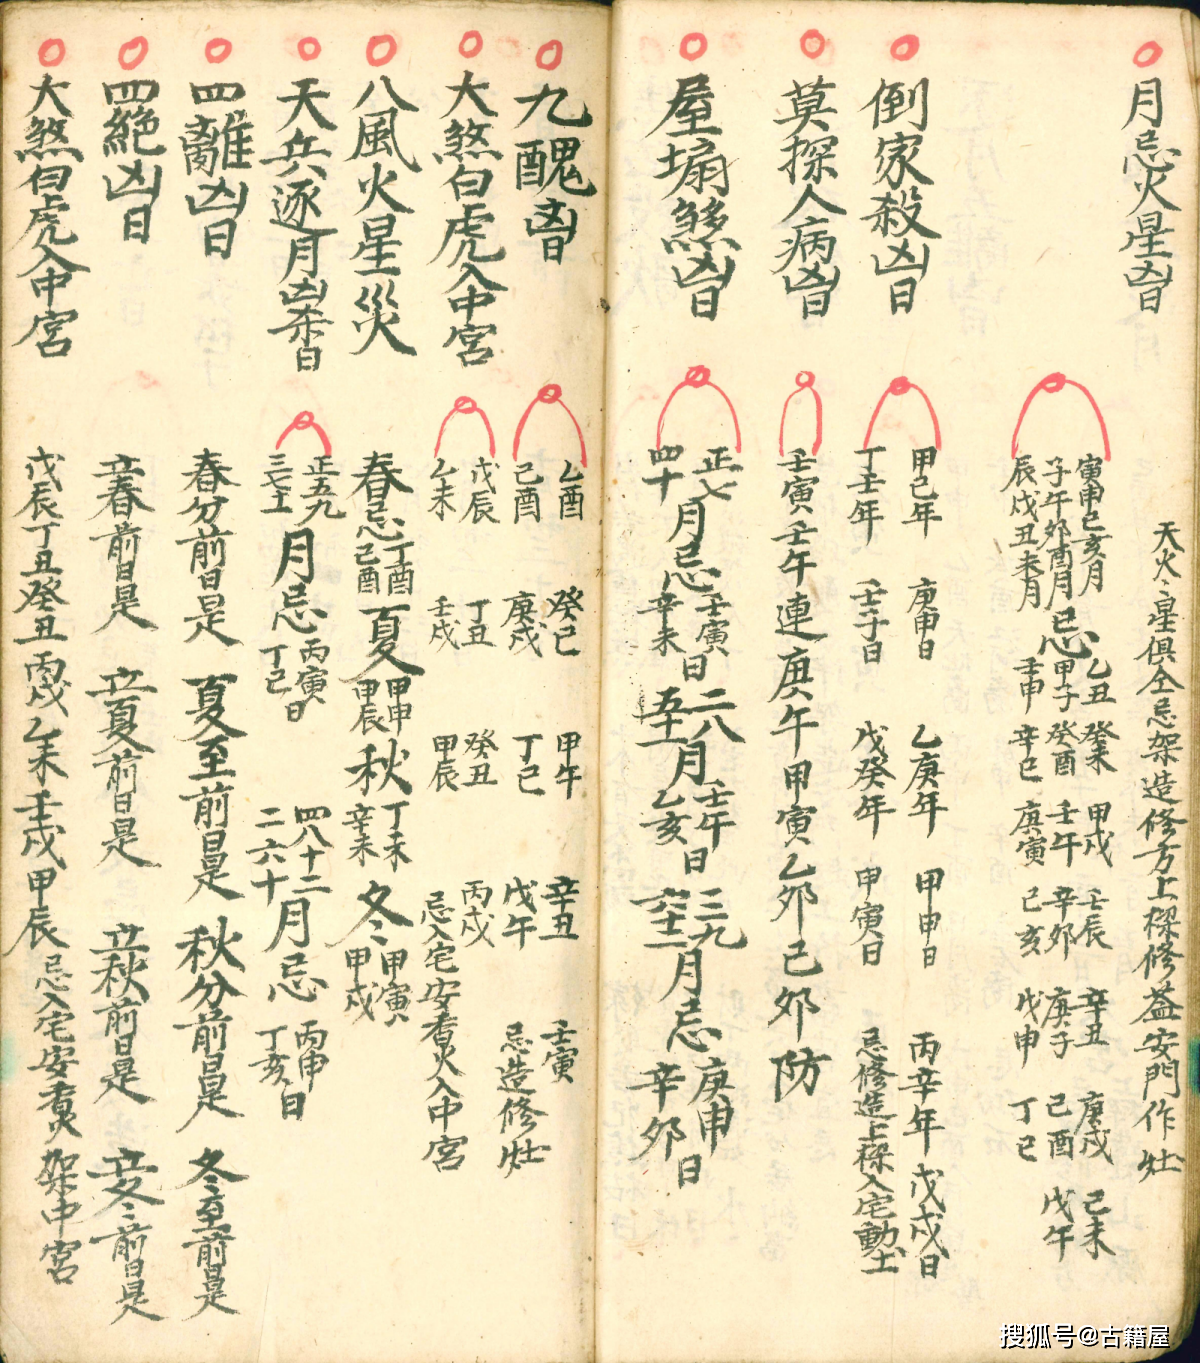 月忌火星凶日
天火火星俱全忌架造修方上樑修葢安門作灶
寅申巳亥月
子午卯酉月
辰戌丑未月
忌
乙丑 癸未 甲戌 壬辰 辛丑 庚戌 己未
甲子 癸酉 壬午 辛卯 庚子 己酉 戊午
壬申 辛巳 庚寅 己亥 戊申 丁巳
倒家殺凶日
甲己年 庚申日 乙庚年 甲申日 丙辛年戊戌日
丁壬年 壬子日 戊癸年 甲寅日 忌修造上樑入宅動土
莫探人病凶日
壬寅壬午連庚午甲寅乙卯己卯防
屋塌煞凶日
正七
四十
月忌
壬寅
辛未
日
二八
五十一
月
壬午
乙亥
日
三九
六十二
月忌
庚申
辛卯
日
九醜凶日
乙酉 癸巳 甲午 辛丑 壬寅
己酉 庚戌 丁巳 戊午 忌造修灶
大煞白虎入中宮
戊辰 丁丑 癸丑 丙戌
乙未 壬戌 甲辰 忌入宅安香火入中宮
八風火星災
春忌
丁酉
己酉
夏
甲申
甲辰
秋
丁未
辛未
冬
甲寅
甲戌
天兵逐月凶杀日
正五九
三七十一
月忌
丙寅
丁巳
日
四八十二
二六十
月忌
丙申
丁亥
日
四離凶日
春分前日是 夏至前日是 秋分前日是 冬至前日是
四絕凶日
立春前日是 立夏前日是 立秋前日是 立冬前日是
大煞白虎入中宮
戊辰丁丑癸丑丙戌乙未壬戌甲辰忌入宅安香火架中宮
搜狐号@古籍屋